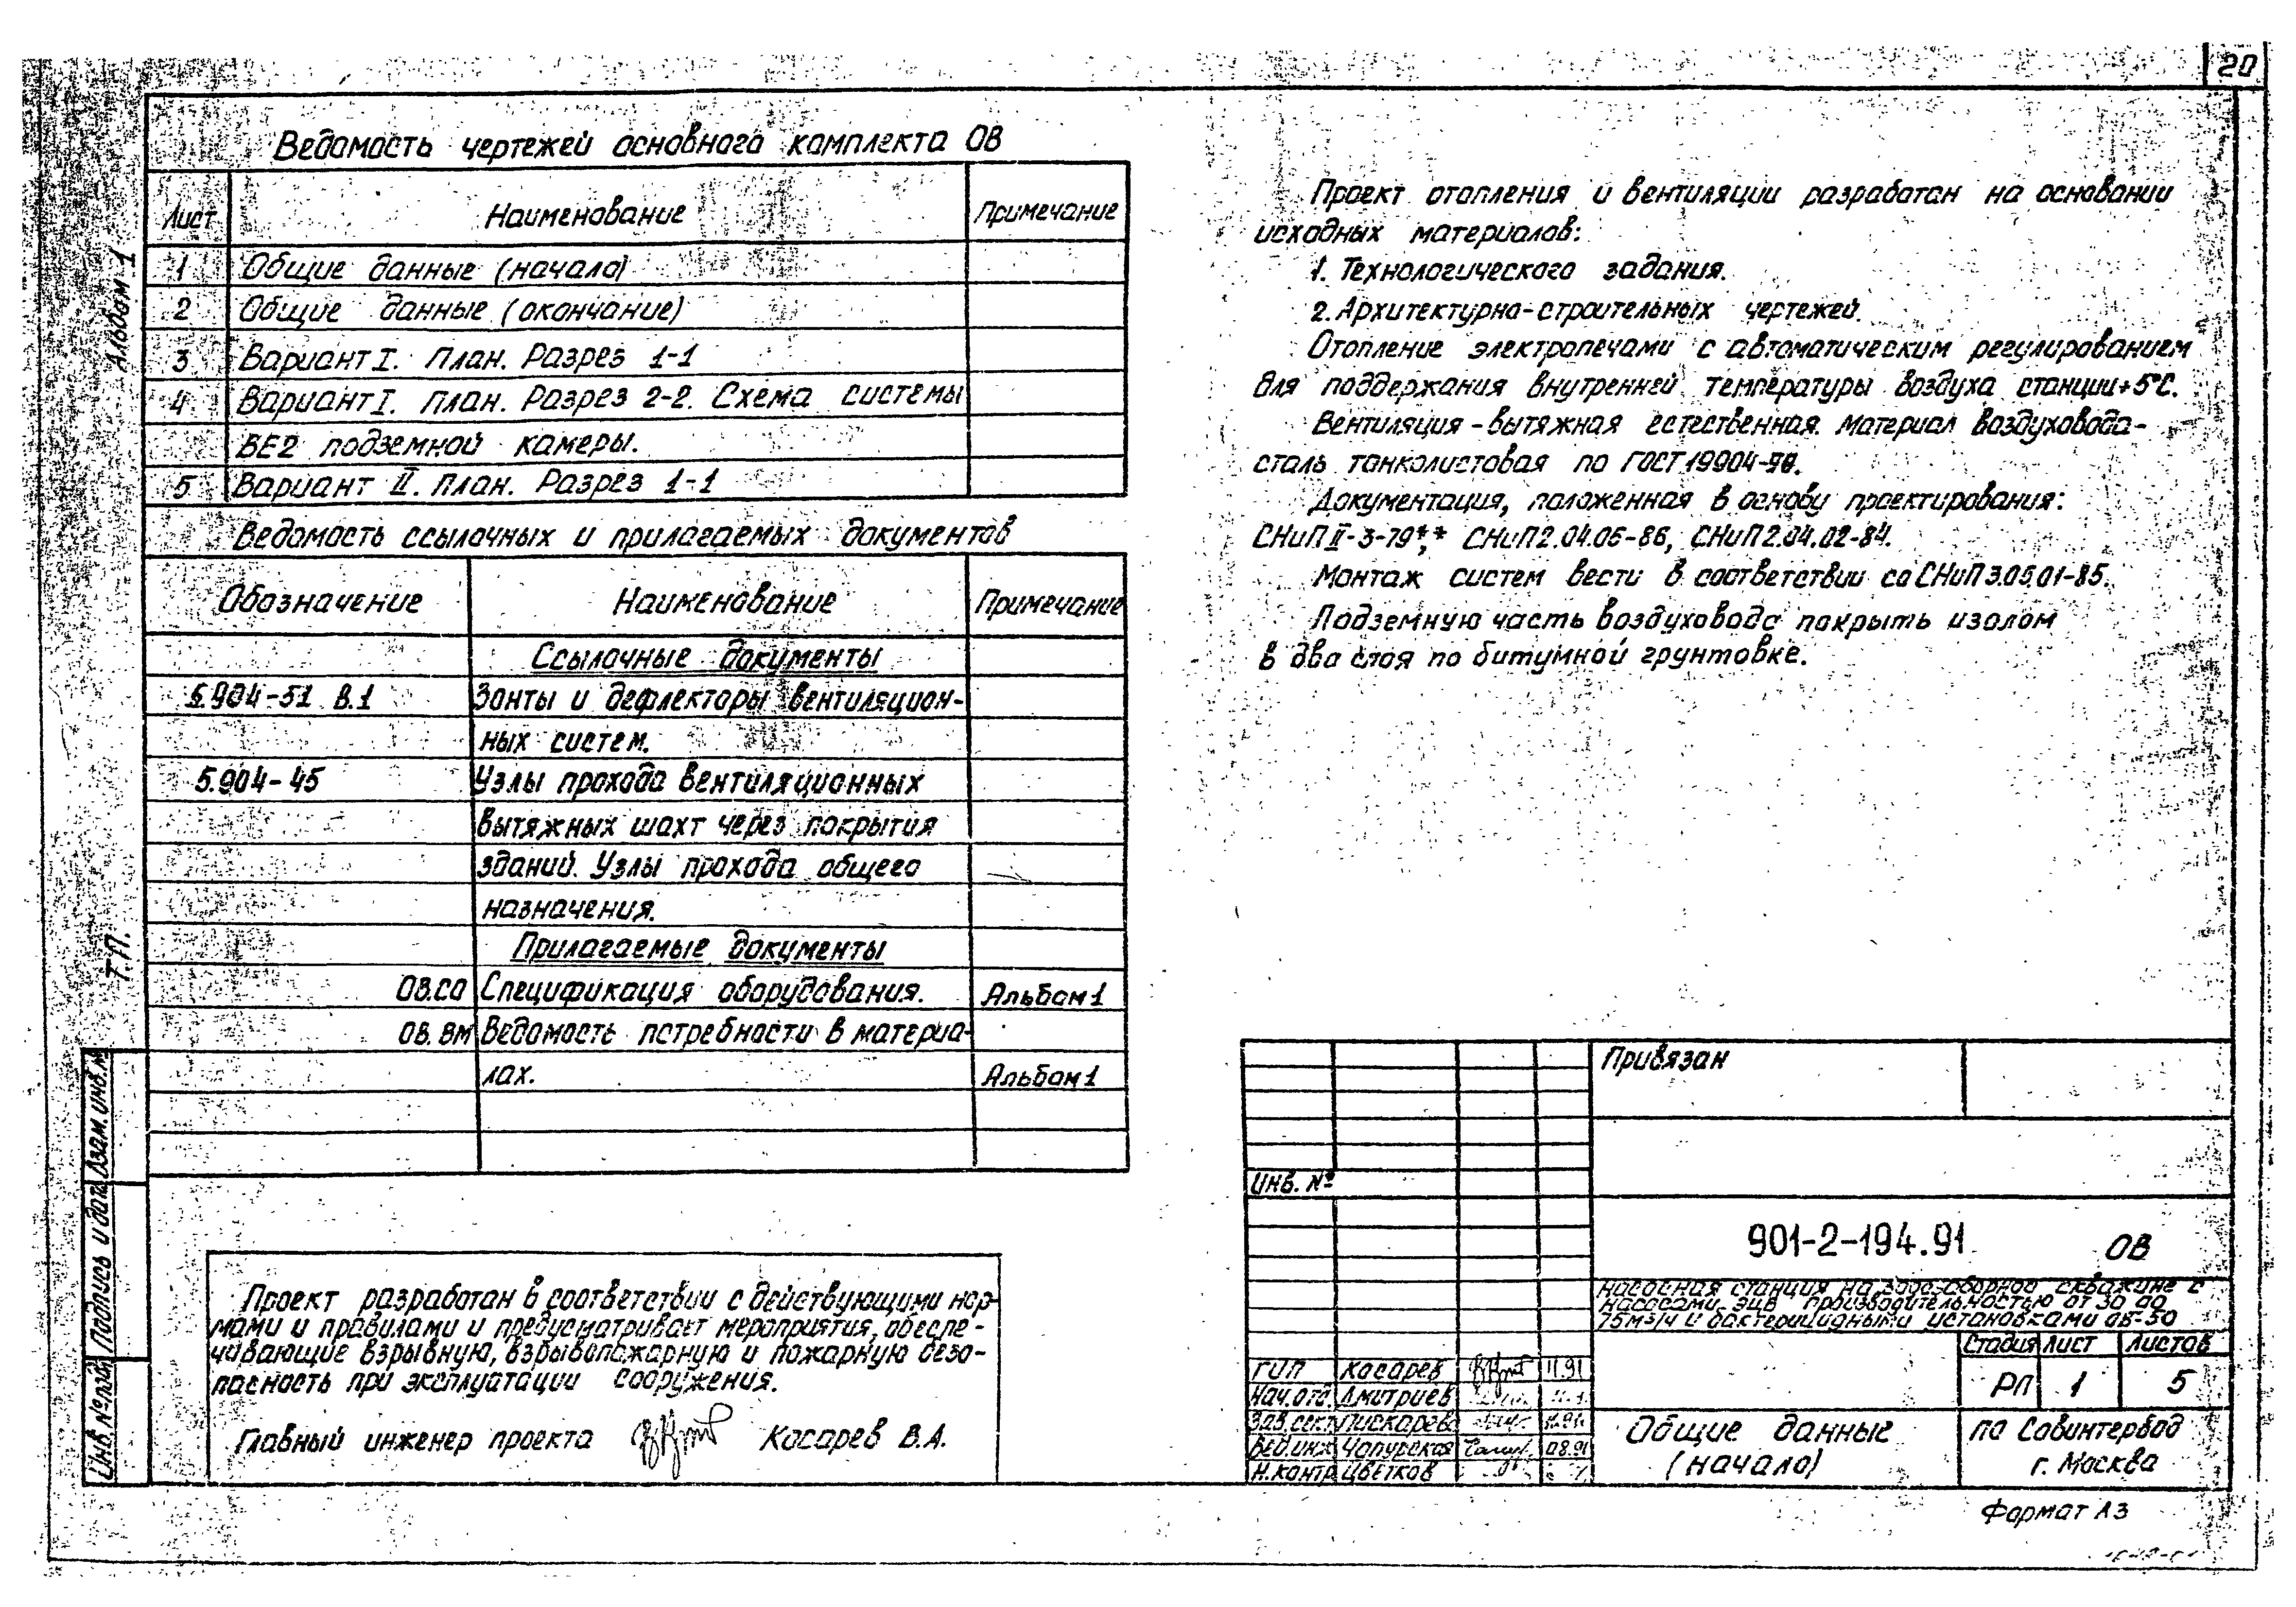 20
Альбом 1
Т.П.
Ведомость чертежей основного комплекта ОВ
Лист Наименование Примечание
1 Общие данные (начало)
2 Общие данные (окончание)
3 Вариант I. План. Разрез 1-1
4 Вариант I. План. Разрез 2-2. Схема системы
ВЕ2 подземной камеры.
5 Вариант II. План. Разрез 1-1
Ведомость ссылочных и прилагаемых документов
Обозначение Наименование Примечание
Ссылочные документы
5.904-51 В.1 Зонты и дефлекторы вентиляцион-
ных систем.
5.904-45 Узлы прохода вентиляционных
вытяжных шахт через покрытия
зданий. Узлы прохода общего
назначения.
Прилагаемые документы
ОВ.СО Спецификация оборудования. Альбом 1
ОВ.ВМ Ведомость потребности в материа-
лах. Альбом 1
Проект разработан в соответствии с действующими нор-
мами и правилами и предусматривает мероприятия, обеспе-
чивающие взрывную, взрывопожарную и пожарную безо-
пасность при эксплуатации сооружения.
Главный инженер проекта Косарев В.А.
Проект отопления и вентиляции разработан на основании
исходных материалов:
1. Технологического задания.
2. Архитектурно-строительных чертежей.
Отопление электропечами с автоматическим регулированием
для поддержания внутренней температуры воздуха станции +5°С.
Вентиляция - вытяжная естественная. Материал воздуховода-
сталь тонколистовая по ГОСТ 19904-90.
Документация, положенная в основу проектирования:
СНиП II-3-79**, СНиП 2.04.05-86, СНиП 2.04.02-84.
Монтаж систем вести в соответствии со СНиП 3.05.01-85.
Подземную часть воздуховода покрыть изолом
в два слоя по битумной грунтовке.
Привязан
Инв. №
901-2-194.91 ОВ
Насосная станция на водозаборной скважине с
насосами ЭЦВ производительностью от 30 до
75м3/ч и бактерицидными установками ОВ-50
Стадия Лист Листов
РП 1 5
ГИП Косарев 11.91
Нач.отд. Дмитриев
Зав.сект. Пискарев
Вед.инж Чапурская 08.91
Н.контр Цветков
Общие данные
(начало)
ПО Совинтервод
г. Москва
Формат А3
Взам. инв. №
Подпись и дата
Инв. № подл